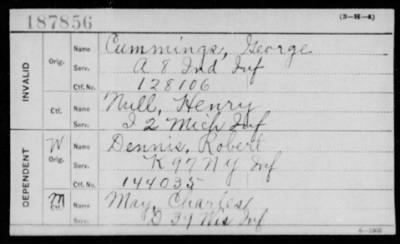 187856 (3-H-4)
INVALID Orig. Name Cummings, George
Serv. A 8 Ind Inf
Ctf. No. 128106
Ctf. Name Null, Henry
Serv. I 2 Mich Inf
DEPENDENT W Orig. Name Dennis, Robert
Serv. K 97 N Y Inf
Ctf. No. 144035
M Ctf. Name May, Charles
Serv. D 39 Wis Inf